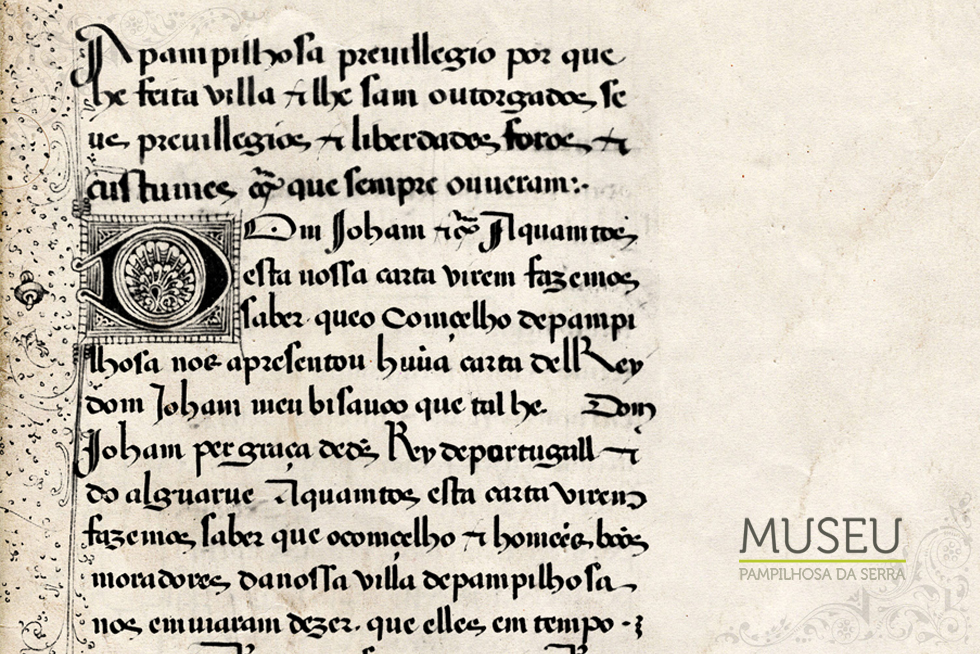 A pampilhosa preuillegio por que
he feita villa ⁊ lhe sam outorgados se
us preuillegios ⁊ liberdades foros ⁊
custumes que sempre ouueram:.
Dom Joham ⁊ A quamtos
esta nossa carta virem fazemos
saber que o Comçelho de pampi
lhosa nos apresentou huũa carta dell Rey
dom Joham meu bisauoo que tal he. Dom
Joham per graça de ds̃ Rey de portugall ⁊
do alguarue A quamtos esta carta virem
fazemos saber que o comçelho ⁊ homeẽs boõs
moradores da nossa villa de pampilhosa
nos emuiaram dezer. que elles em tempo
MUSEU
PAMPILHOSA DA SERRA